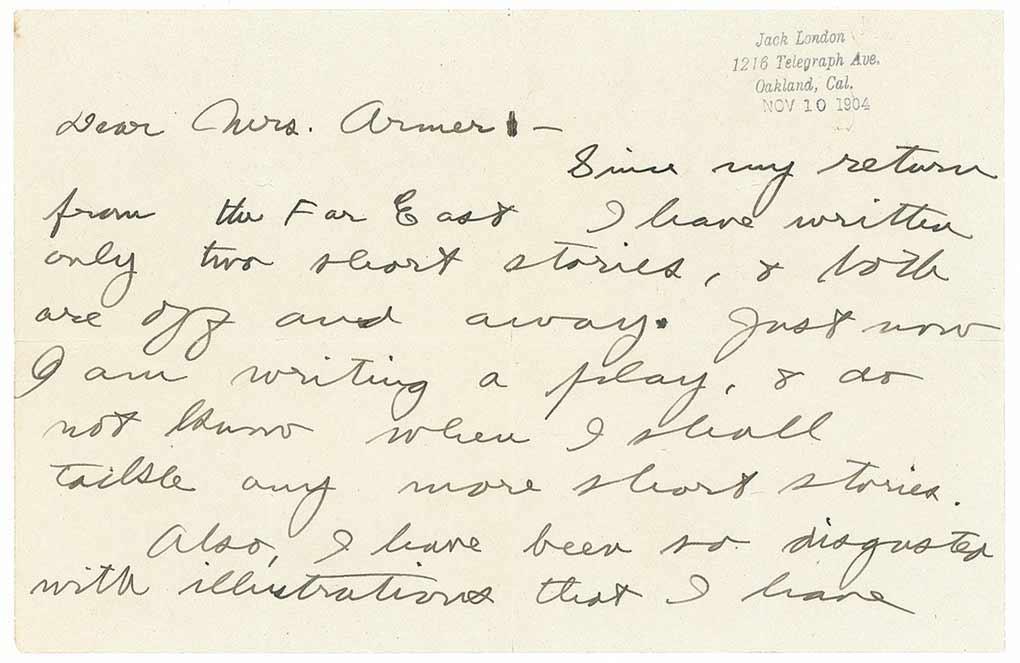 Jack London
1216 Telegraph Ave.
Oakland, Cal.
NOV 10 1904
Dear Mrs. Armer –
Since my return
from the Far East I have written
only two short stories, & both
are off and away. Just now
I am writing a play, & do
not know when I shall
tackle any more short stories.
Also, I have been so disgusted
with illustrations that I have